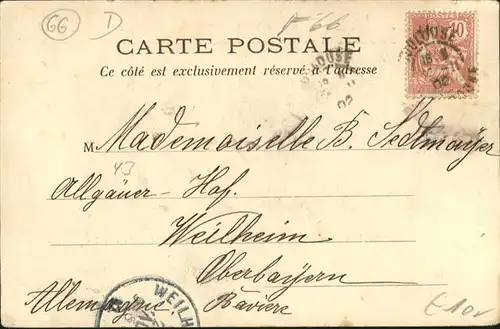 GG D F 66
CARTE POSTALE
Ce côté est exclusivement réservé à l'adresse
POSTES 10
TOULOUSE
M Mademoiselle B. Sedlmayer
43
Allgäuer - Hof.
Weilheim
Oberbayern
Allemagne Bavière
WEILH
£10r